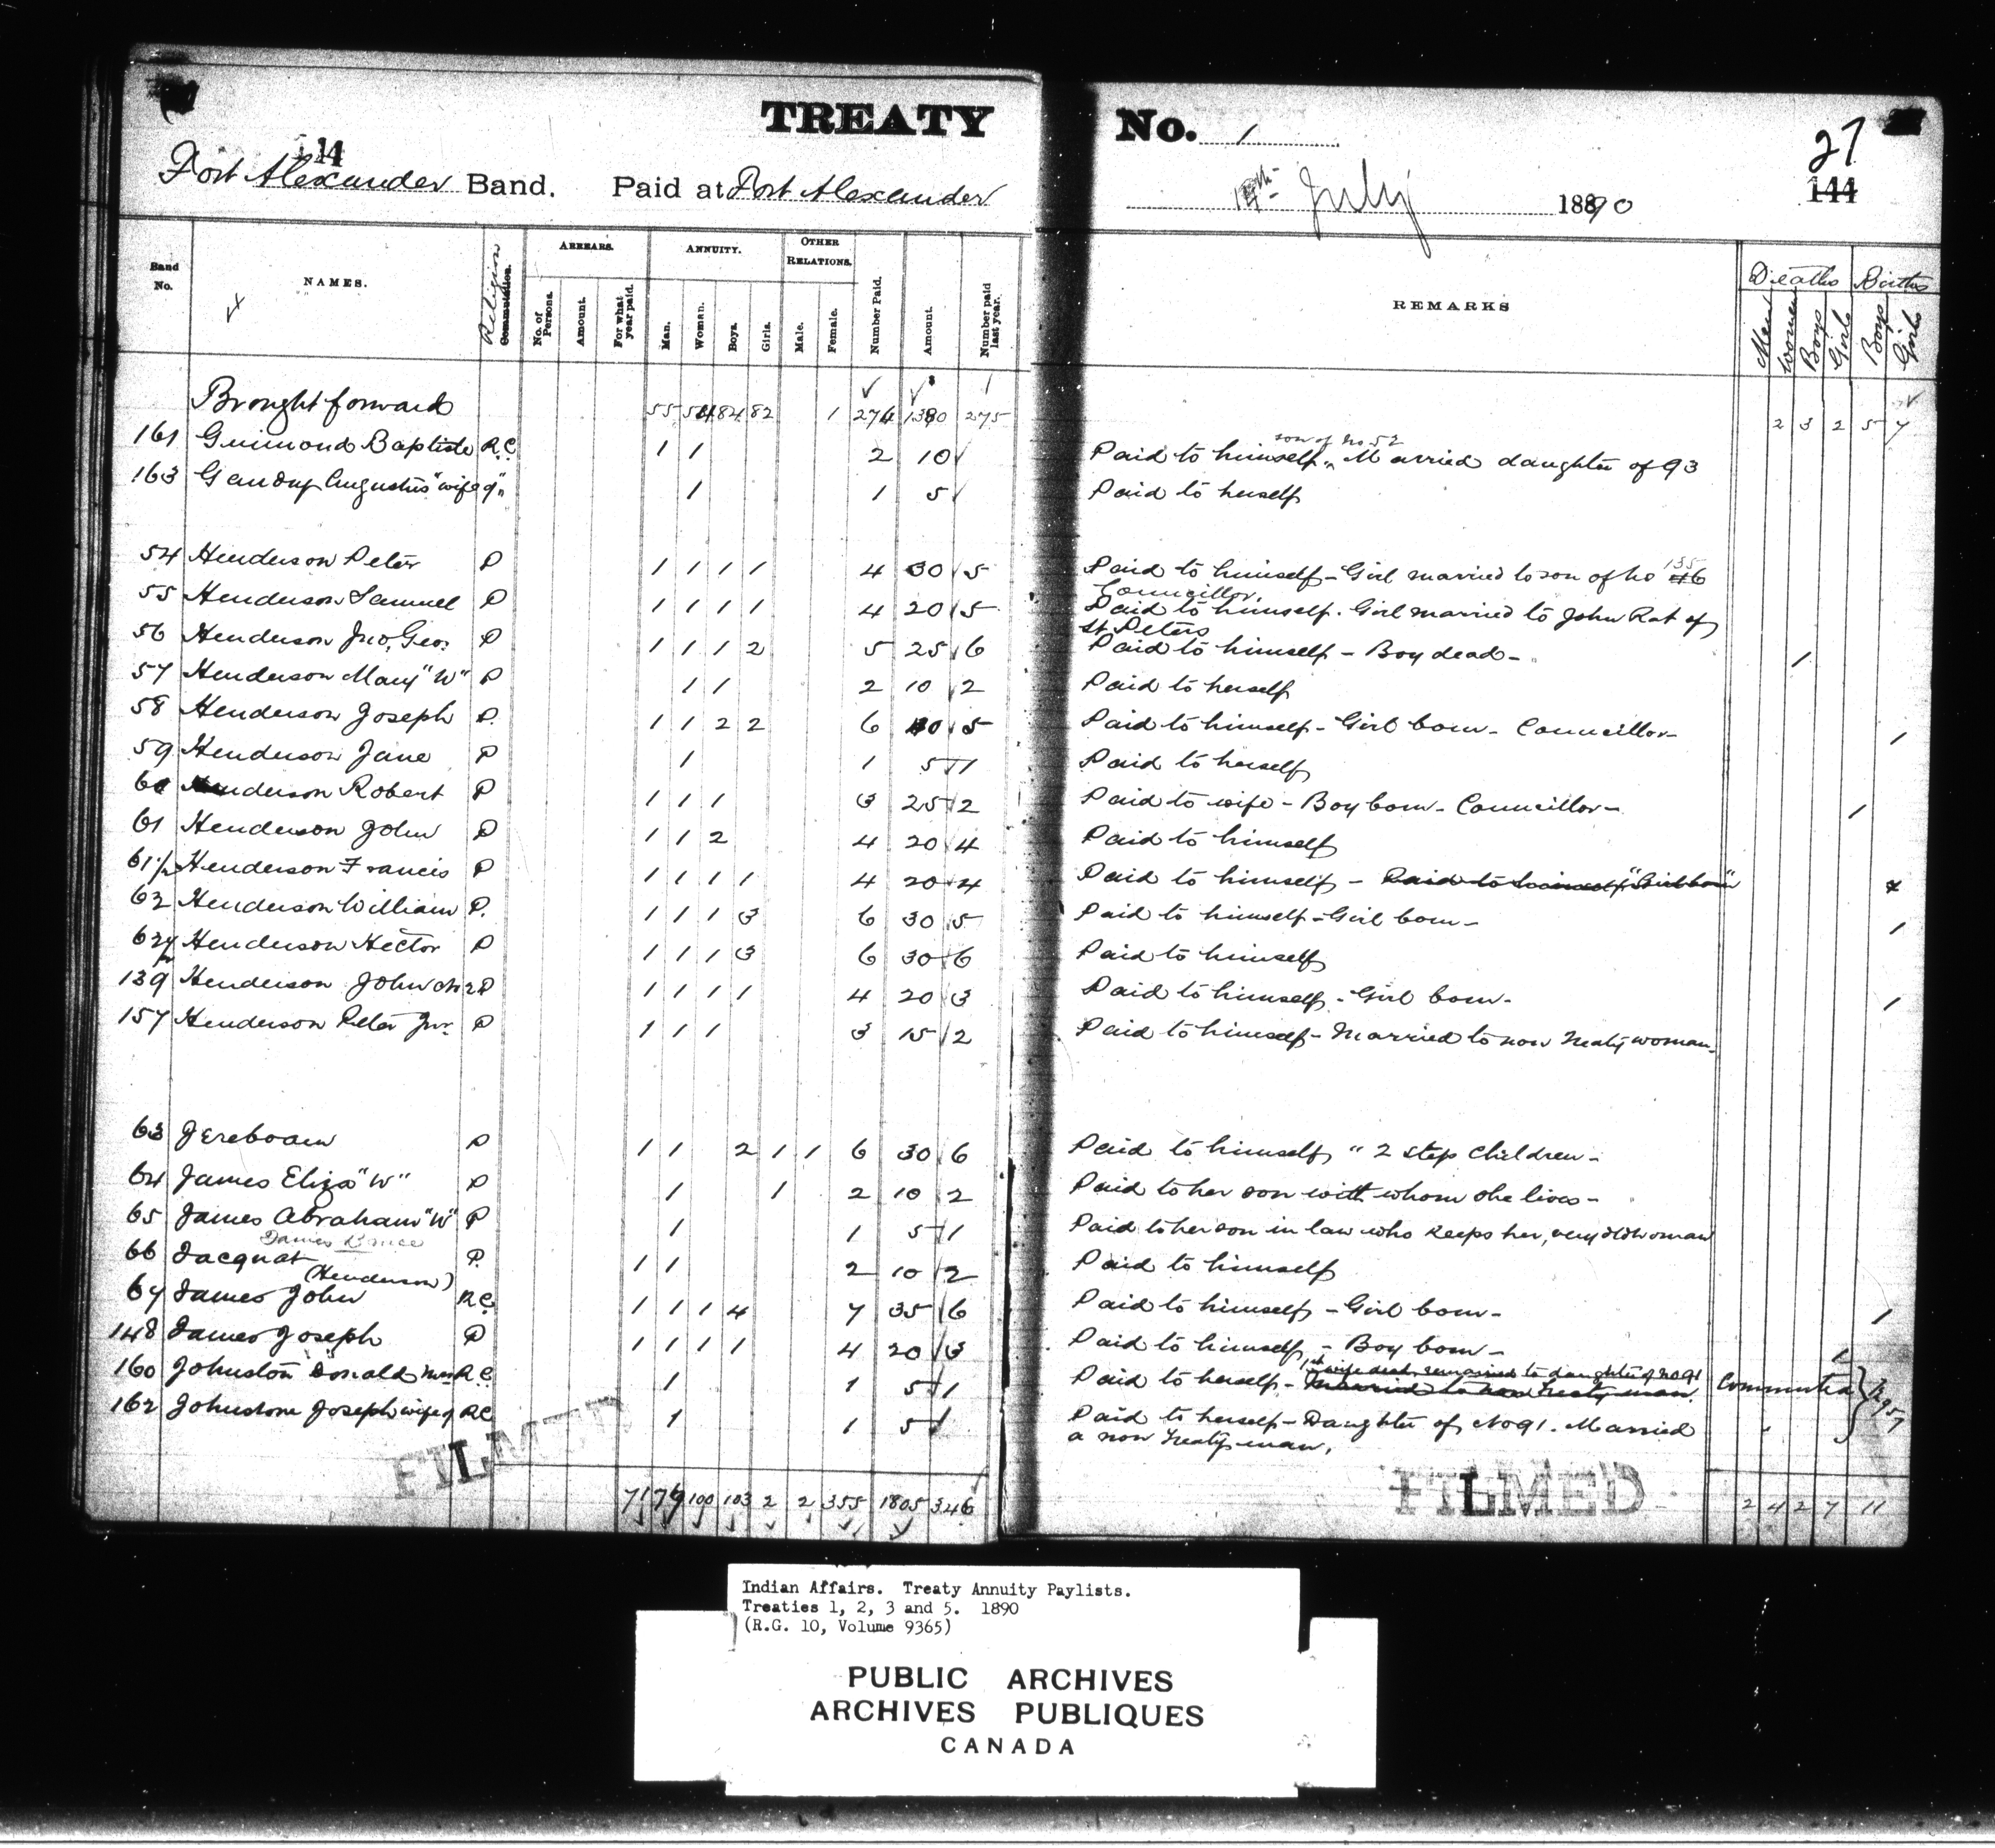 TREATY No. 1
144
Fort Alexander Band. Paid at Fort Alexander
July 1890
27
144
Band No.
NAMES.
Religion
Commutation.
ARREARS.
No. of Persons.
Amount.
For what year paid.
ANNUITY.
Man.
Woman.
Boys.
Girls.
OTHER RELATIONS.
Male.
Female.
Number Paid.
Amount.
Number paid last year.
REMARKS
Deaths Births
Men Women Boys Girls Boys Girls
Brought forward 55 54 84 82 1 274 1380 275 2 3 2 5 7
161 Guimond Baptiste R.C. 1 1 2 10 Paid to himself son of No 52 Married daughter of 93
163 Gaudry Augustus "wife of" 1 1 5 Paid to herself
54 Henderson Peter P 1 1 1 1 4 30 5 Paid to himself - Girl married to son of No 46 135
Councillor.
55 Henderson Samuel P 1 1 1 1 4 20 5 Paid to himself. Girl married to John Rat of
St Peters
56 Henderson Jno. Geo. P 1 1 1 2 5 25 6 Paid to himself - Boy dead - 1
57 Henderson Mary "W" P 1 1 2 10 2 Paid to herself
58 Henderson Joseph P. 1 1 2 2 6 40 5 Paid to himself - Girl born - Councillor - 1
59 Henderson Jane P 1 1 5 1 Paid to herself
60 Henderson Robert P 1 1 1 3 25 2 Paid to wife - Boy born - Councillor - 1
61 Henderson John P 1 1 2 4 20 4 Paid to himself
61½ Henderson Francis P 1 1 1 1 4 20 4 Paid to himself - Paid to himself "Girl born"
62 Henderson William P. 1 1 1 3 6 30 5 Paid to himself - Girl born - 1
62½ Henderson Hector P 1 1 1 3 6 30 6 Paid to himself
139 Henderson John No 2 P 1 1 1 1 4 20 3 Paid to himself - Girl born - 1
157 Henderson Peter Jnr. P 1 1 1 3 15 2 Paid to himself - Married to non Treaty woman -
63 Jereboam P 1 1 2 1 1 6 30 6 Paid to himself " 2 step children -
64 James Eliza "W" P 1 1 2 10 2 Paid to her son with whom she lives -
65 James Abraham "W" P 1 1 5 1 Paid to her son in law who keeps her, very old woman
James
66 Jacquat P. 1 1 2 10 2 Paid to himself
(Henderson)
67 James John R.C. 1 1 1 4 7 35 6 Paid to himself - Girl born - 1
148 James Joseph P 1 1 1 1 4 20 3 Paid to himself - Boy born - 1
1st wife dead, remarried to daughter of No 91
160 Johnston Donald Mrs R.C. 1 1 5 1 Paid to herself - Married to non Treaty man. Commuted
162 Johnstone Joseph wife of R.C. 1 1 5 1 Paid to herself - Daughter of No 91. Married
a non Treaty man.
71 79 100 103 2 2 355 1805 346 2 4 2 7 11
FILMED
FILMED
Indian Affairs. Treaty Annuity Paylists.
Treaties 1, 2, 3 and 5. 1890
(R.G. 10, Volume 9365)
PUBLIC ARCHIVES
ARCHIVES PUBLIQUES
CANADA